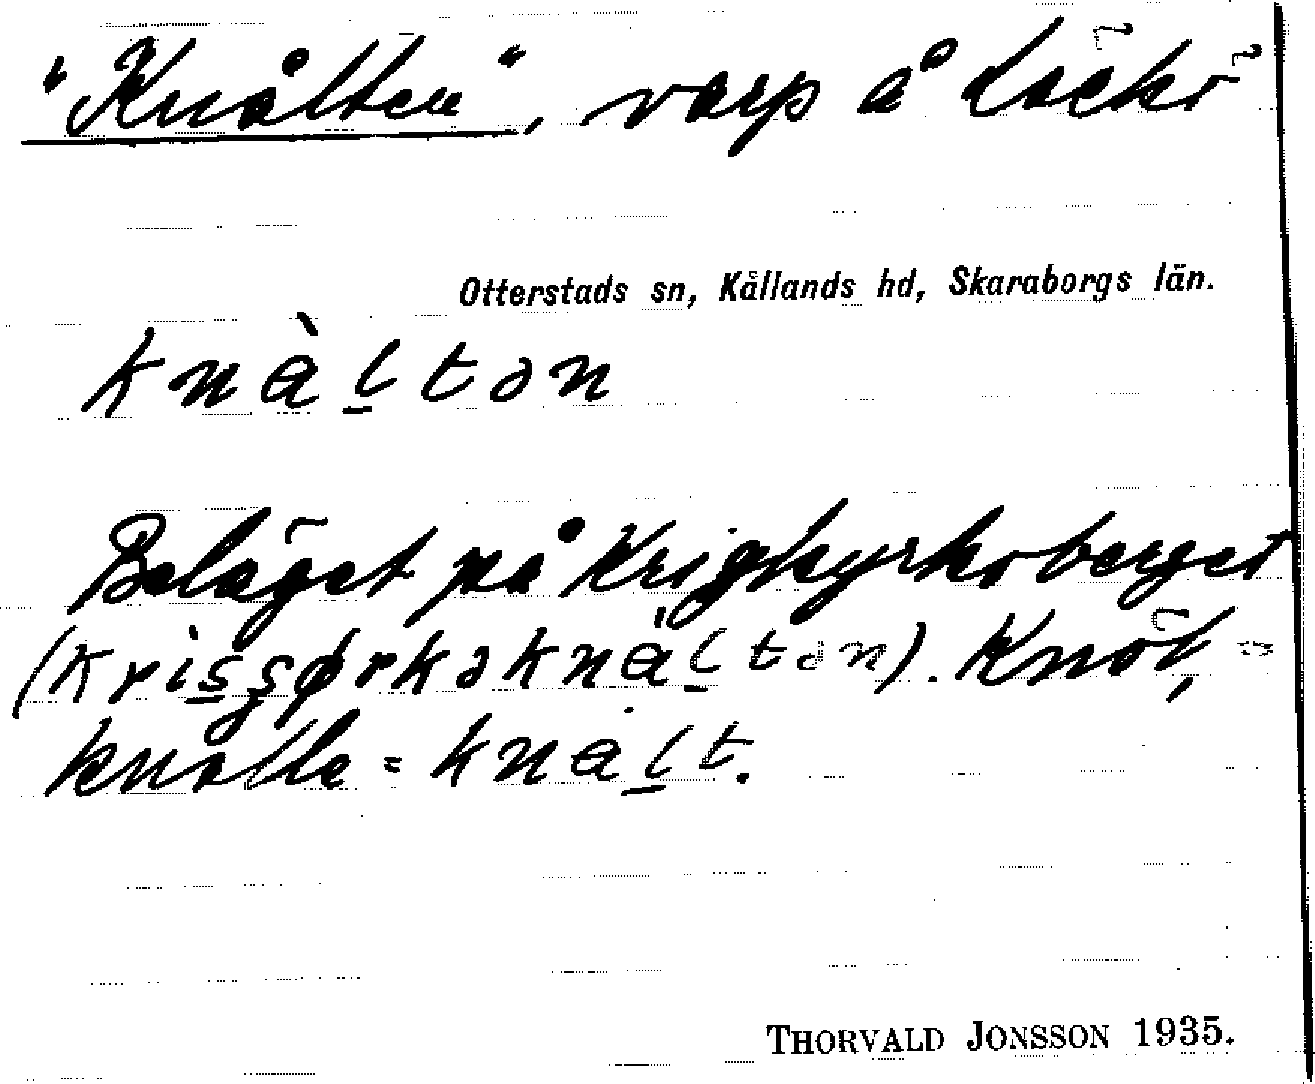 "Knålten", varp å Läckö
Otterstads sn, Kållands hd, Skaraborgs län.
knàltən
Beläget på Krigkyrkoberget
(krisşørkəknàltən). Knöl,
knalle = knalt.
THORVALD JONSSON 1935.